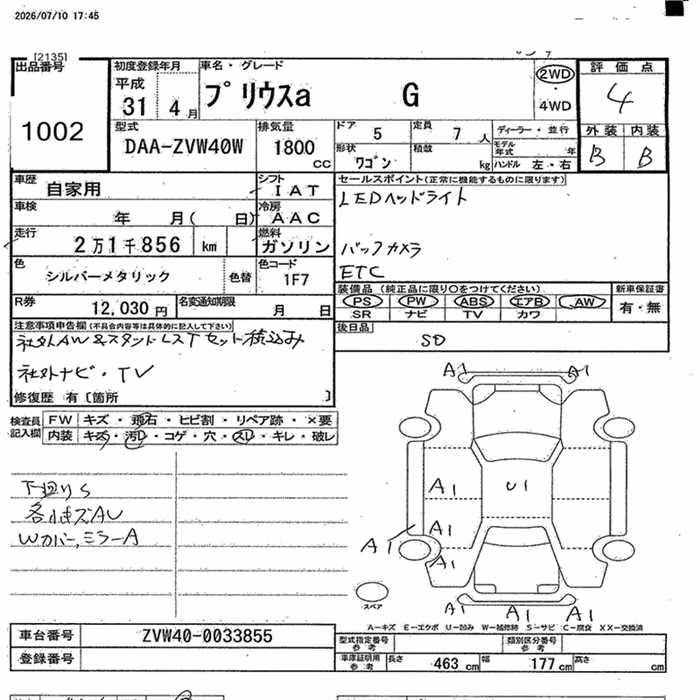 2026/07/10 17:45
[2135]
出品番号
1002
初度登録年月
平成
31年 4月
車名・グレード
プリウスa G
2WD
・
4WD
評価点
4
外装 内装
B B
型式
DAA-ZVW40W
排気量
1800
cc
ドア 5
定員 7 人
ディーラー・並行
形状 ワゴン
積載 kg
モデル年式 年
ハンドル 左・右
車歴 自家用
シフト IAT
車検 年 月( 日)
冷房 AAC
走行 2万1千856 km
燃料 ガソリン
色 シルバーメタリック
色替
色コード 1F7
R券 12,030円
名変通知期限 月 日
セールスポイント(正常に機能するものに限ります)
LEDヘッドライト
バックカメラ
ETC
装備品 (純正品に限り○をつけてください)
新車保証書
PS PW ABS エアB AW
有・無
SR ナビ TV カワ
後日品
SD
注意事項申告欄(不具合内容等は具体的に記入して下さい)
社外AW&スタッドレスTセット積込み
社外ナビ・TV
修復歴 有〔箇所 〕
検査員
記入欄
FW キズ・飛石・ヒビ割・リペア跡・×要
内装 キズ・汚レ・コゲ・穴・スレ・キレ・破レ
下廻りS
各小キズAU
Wカバー、ミラーA
A1 A1
A1 U1
A1
A1
A1
A1 A1 A1
スペア
A-キズ E-エクボ U-凹み W-補修跡 S-サビ C-腐食 XX-交換済
車台番号 ZVW40-0033855
登録番号
型式指定番号
参考
類別区分番号
参考
車庫証明用
参考
長さ 463 cm 幅 177 cm 高さ cm